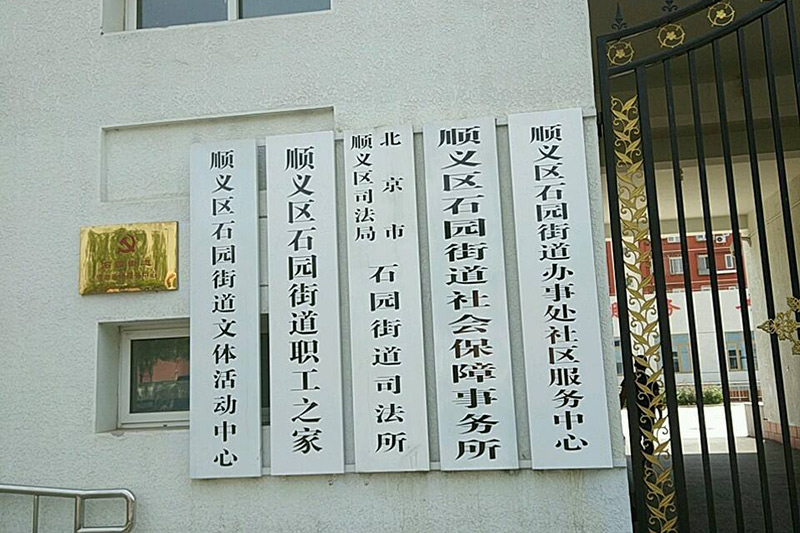 顺义区石园街道文体活动中心
顺义区石园街道职工之家
北京市
顺义区司法局
石园街道司法所
顺义区石园街道社会保障事务所
顺义区石园街道办事处社区服务中心